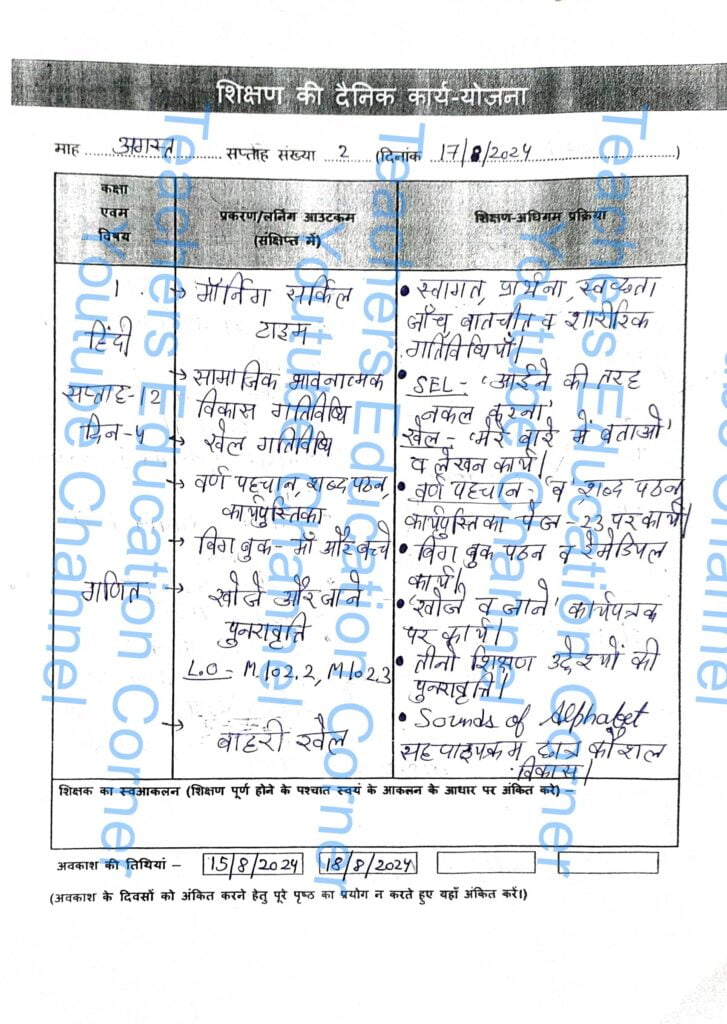 शिक्षण की दैनिक कार्य-योजना
माह अगस्त सप्ताह संख्या 2 (दिनांक 17/8/2024)
कक्षा
एवम
विषय
प्रकरण/लर्निंग आउटकम
(संक्षिप्त में)
शिक्षण-अधिगम प्रक्रिया
1
हिंदी
सप्ताह-12
दिन-5
→ मॉर्निंग सर्किल
टाइम
→ सामाजिक भावनात्मक
विकास गतिविधि
→ खेल गतिविधि
→ वर्ण पहचान, शब्द पठन,
कार्यपुस्तिका
→ बिग बुक- माँ और बच्चे
• स्वागत, प्रार्थना, स्वच्छता
जाँच बातचीत व शारीरिक
गतिविधियाँ।
• SEL- 'आईने की तरह
नकल करना'
खेल- 'मेरे बारे में बताओ'
व लेखन कार्य।
• वर्ण पहचान- 'व' शब्द पठन
कार्यपुस्तिका पेज-23 पर कार्य।
• बिग बुक पठन व रेमेडियल
कार्य।
गणित
→ खोजें और जाने
पुनरावृत्ति
L.O- M102.2, M102.3
→ बाहरी खेल
• 'खोजें व जाने' कार्यपत्रक
पर कार्य।
• तीनो शिक्षण उद्देश्यों की
पुनरावृत्ति।
• Sounds of Alphabet
सहपाठ्यक्रम छात्र कौशल
विकास।
शिक्षक का स्वआकलन (शिक्षण पूर्ण होने के पश्चात स्वयं के आकलन के आधार पर अंकित करे) –
अवकाश की तिथियां – 15/8/2024 18/8/2024
(अवकाश के दिवसों को अंकित करने हेतु पूरे पृष्ठ का प्रयोग न करते हुए यहाँ अंकित करें।)
Teachers Education Corner
Youtube Channel
Teachers Education Corner
Youtube Channel
Teachers Education Corner
Youtube Channel